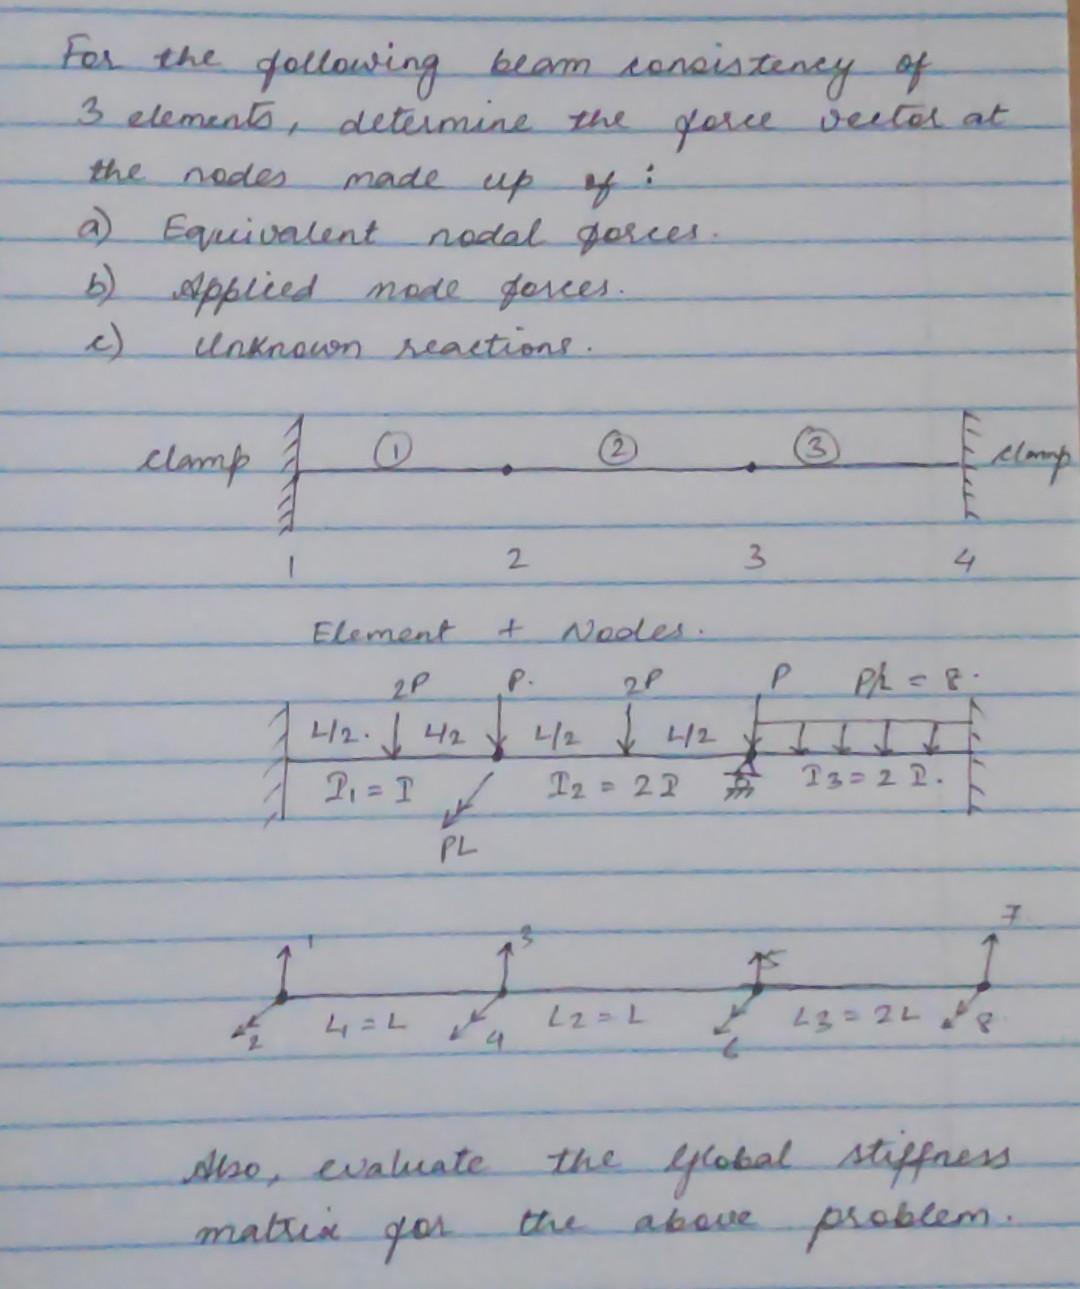 For the following beam consistency of
3 elements, determine the force vector at
the nodes made up of :
a) Equivalent nodal forces.
b) Applied node forces.
c) Unknown reactions.
clamp ① ② ③ clamp
1 2 3 4
Element + Nodes.
2P P. 2P P P/L = 8.
L/2. L/2 L/2 L/2
I1 = I I2 = 2I I3 = 2 I.
PL
1 3 5 7
L1 = L L2 = L L3 = 2L
2 4 6 8
Also, evaluate the global stiffness
matrix for the above problem.